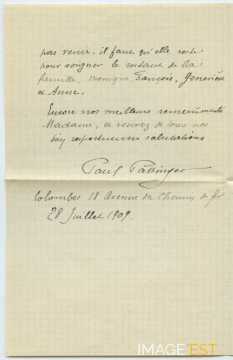 pas venir. il faut qu'elle reste
pour soigner le restant de la
famille, Monique, François, Geneviève
et Anne.
Encore nos meilleurs remerciements
Madame, et recevez de tous nos
bien respectueuses salutations
Paul
Colombes 18 Avenue du Chemin de fer
28 Juillet 1909.
IMAGE'EST